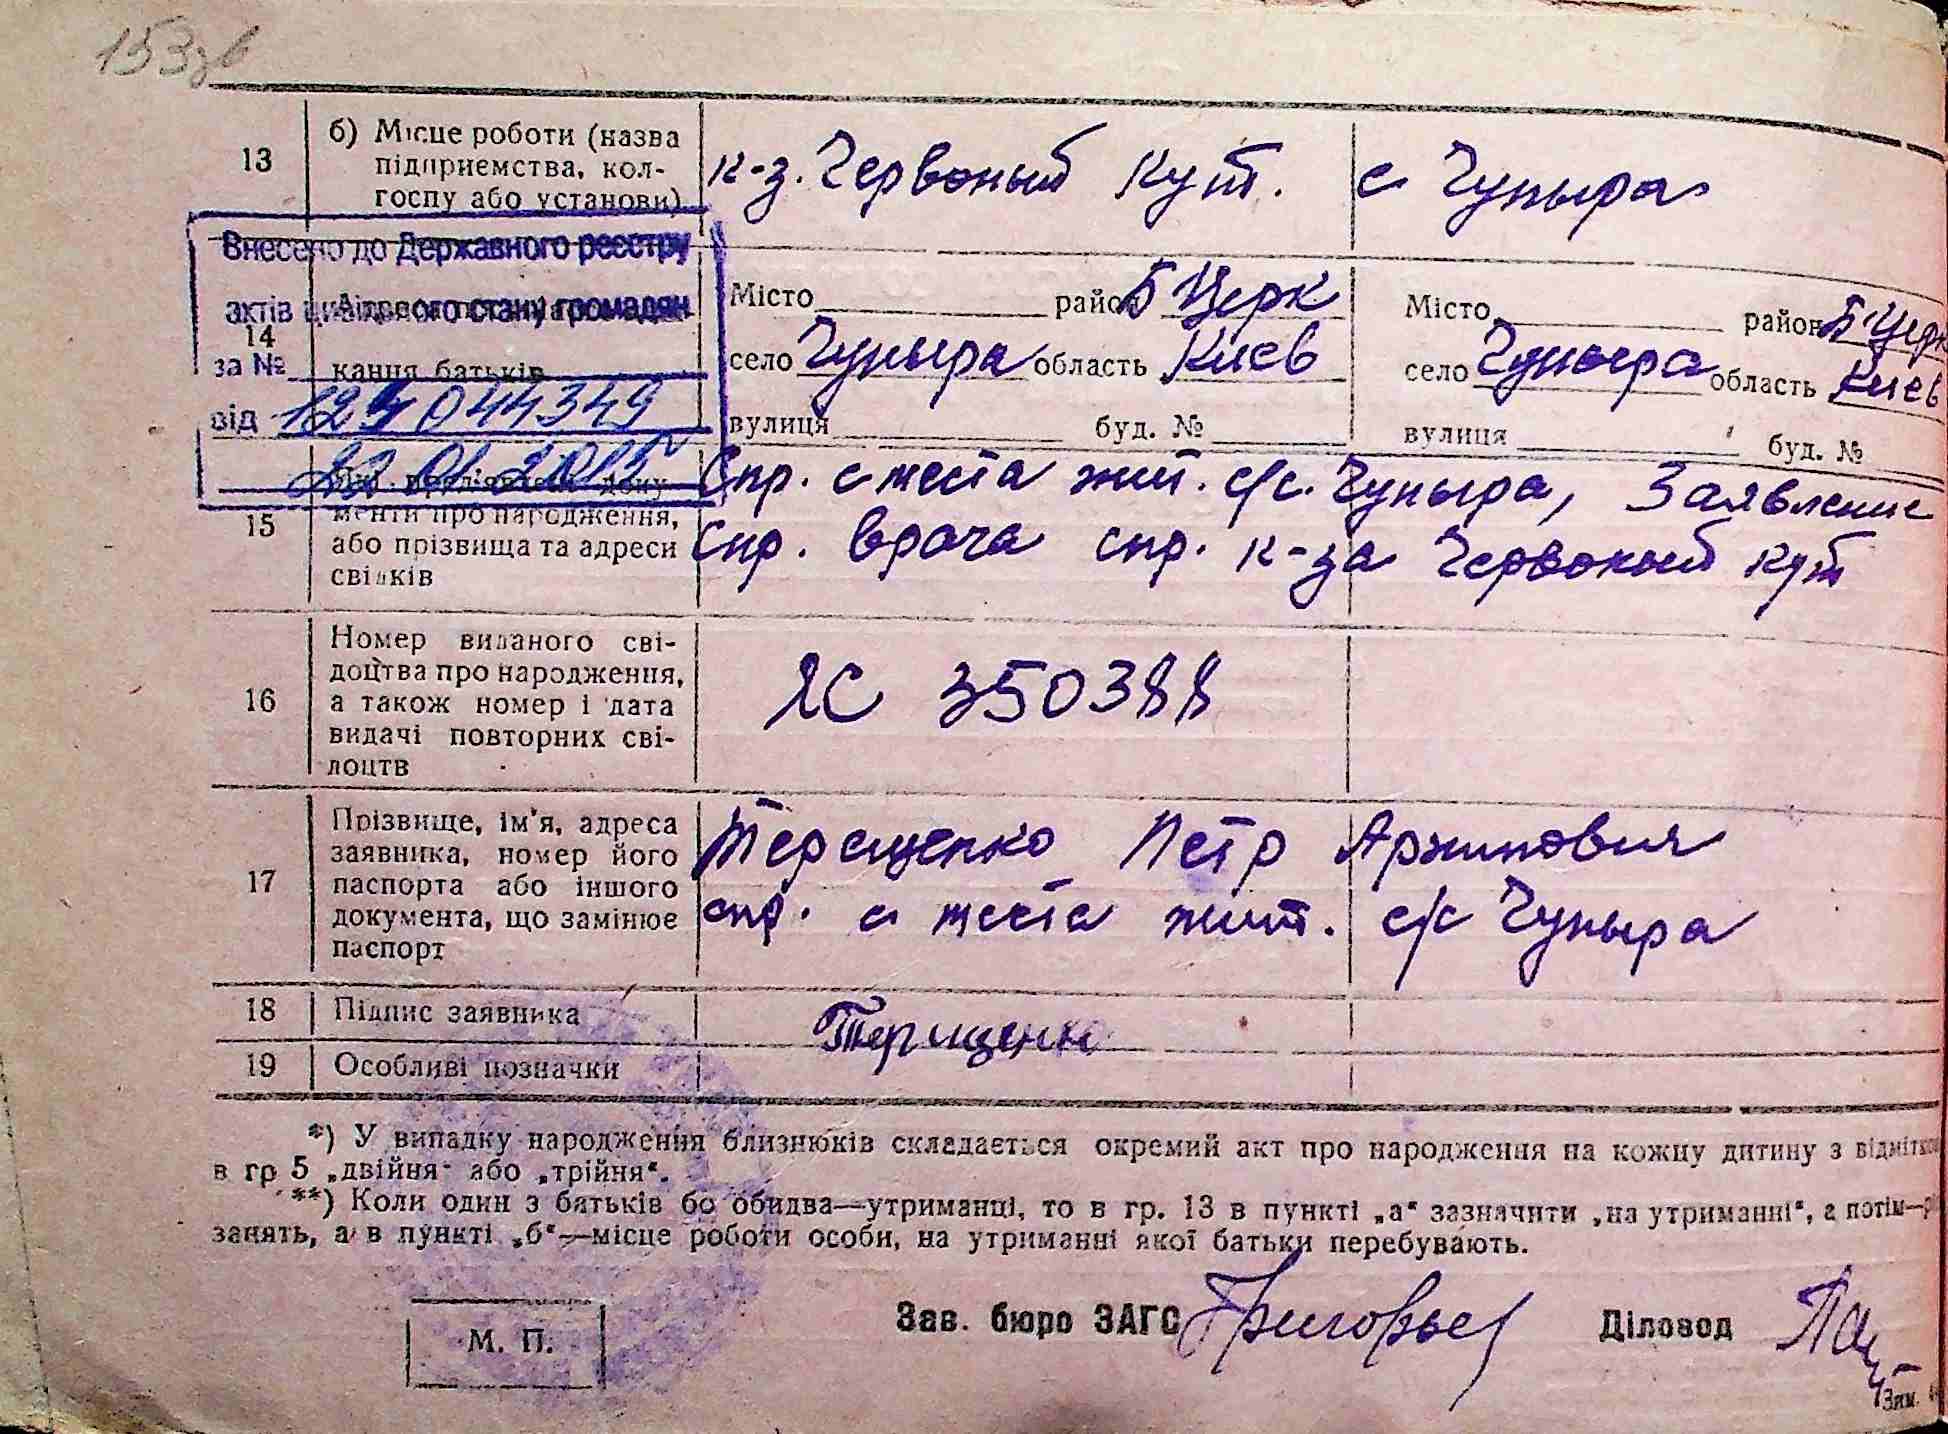 153зв
13
б) Місце роботи (назва
підприємства, кол-
госпу або установи)
к-з. Червоный Кут. с Чупыра
Внесено до Державного реєстру
актів цивільного стану громадян
за №
від 12 044349
22 01. 2015
14
кання батьків
Місто район Б Церк
село Чупыра область Киев
вулиця буд. №
Місто район Б Церк
село Чупыра область Киев
вулиця буд. №
15
менти про народження,
або прізвища та адреси
свідків
Спр. с места жит. с/с. Чупыра, Заявление
Спр. врача спр. к-за Червоный кут
16
Номер виданого сві-
доцтва про народження,
а також номер і дата
видачі повторних сві-
доцтв
ЯС 350388
17
Прізвище, ім'я, адреса
заявника, номер його
паспорта або іншого
документа, що замінює
паспорт
Терещенко Петр
спр. с места жит. с/с Чупыра
18
Підпис заявника
Терищенко
19
Особливі позначки
*) У випадку народження близнюків складається окремий акт про народження на кожну дитину з відміткою
в гр 5 „двійня" або „трійня".
**) Коли один з батьків бо обидва—утриманці, то в гр. 13 в пункті „а" зазначити „на утриманні", а потім—
занять, а в пункті „б"—місце роботи особи, на утриманні якої батьки перебувають.
М. П.
Зав. бюро ЗАГС Григорьев Діловод
Зам.